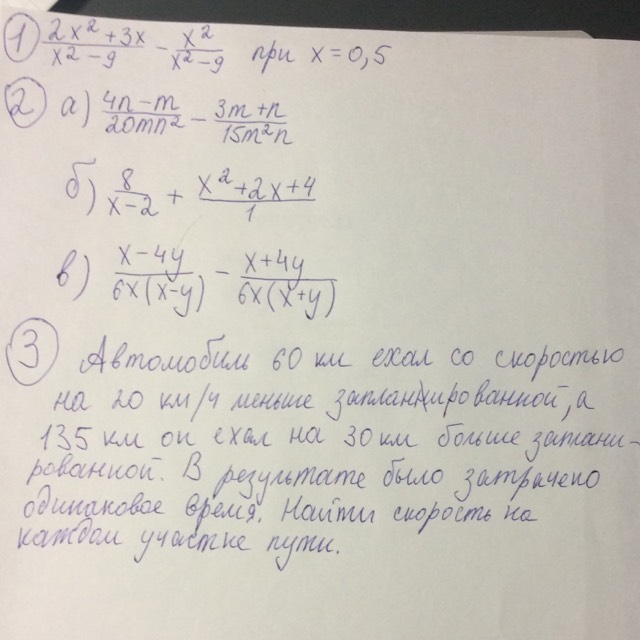 1) (2x² + 3x)/(x² − 9) − x²/(x² − 9) при x = 0,5
2) а) (4n − m)/(20mn²) − (3m + n)/(15m²n)
б) 8/(x − 2) + (x² + 2x + 4)/1
в) (x − 4y)/(6x(x − y)) − (x + 4y)/(6x(x + y))
3) Автомобиль 60 км ехал со скоростью
на 20 км/ч меньше запланированной, а
135 км он ехал на 30 км больше заплани-
рованной. В результате было затрачено
одинаковое время. Найти скорость на
каждом участке пути.